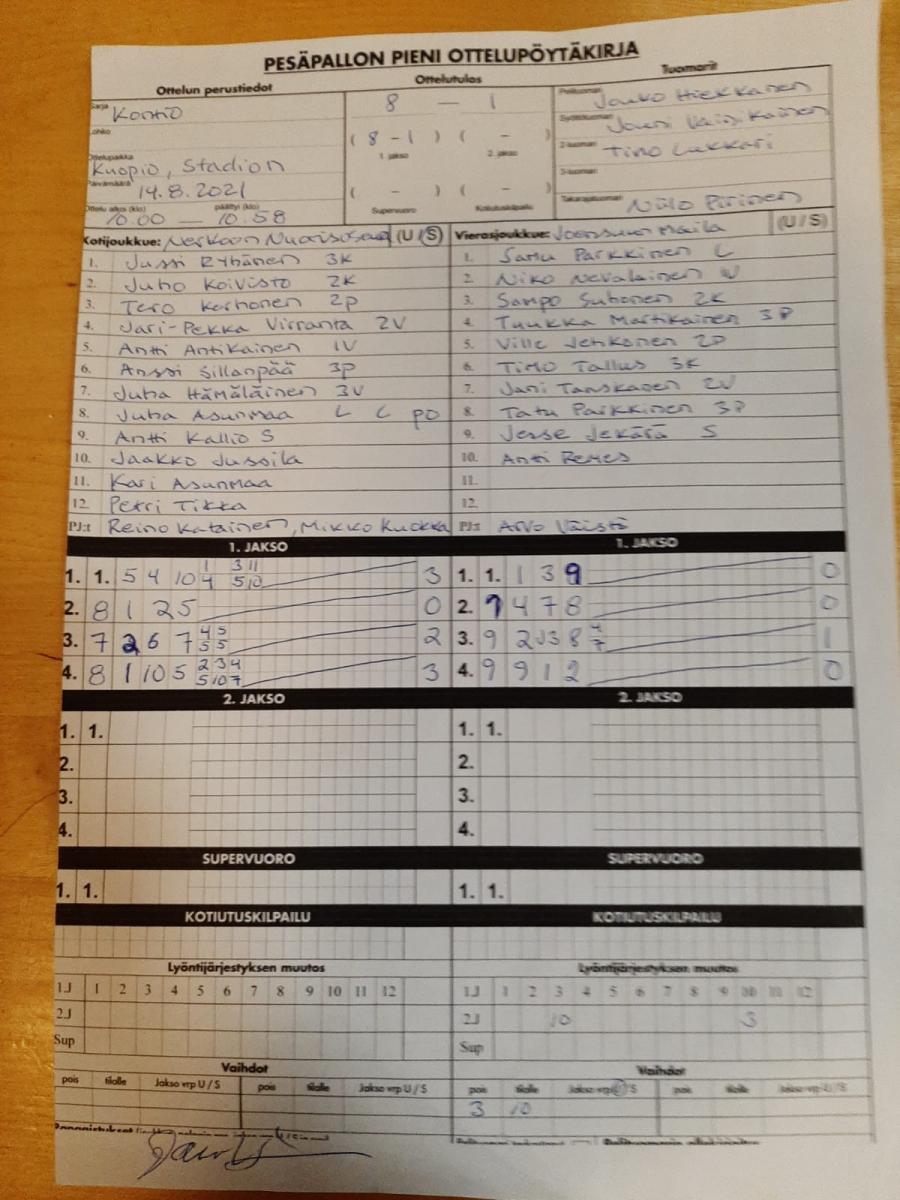 PESÄPALLON PIENI OTTELUPÖYTÄKIRJA
Ottelun perustiedot Ottelutulos Tuomarit
Sarja Kontio 8 — 1 Pelituomari Jouko Hiekkanen
Lohko ( 8 - 1 ) ( - ) Syöttötuomari Jouni Väinikainen
1. jakso 2. jakso 2-tuomari Timo Lukkari
Ottelupaikka Kuopio, Stadion 3-tuomari
Päivämäärä 14.8.2021 ( - ) ( - )
Ottelu alkoi (klo) päättyi (klo) Supervuoro Kotiutuskilpailu Takarajatuomari Niilo Piirinen
10.00 — 10.58
Kotijoukkue: (U / S) Vierasjoukkue: Joensuun Maila (U / S)
1. Jussi Ryhänen 3K 1. Samu Parkkinen L
2. Juho Koivisto 2K 2. Niko Nevalainen
3. Tero Korhonen 2p 3. Sampo Suhonen 2K
4. Jari-Pekka Virranta 2V 4. Tuukka Martikainen 3P
5. Antti Antikainen 1V 5. Ville Jehkonen 2P
6. Anssi Sillanpää 3p 6. Timo Tallus 3K
7. Juha Hämäläinen 3V 7. Jani Tanskanen 2V
8. Juha Asunmaa L L po 8. Tatu Parkkinen 3P
9. Antti Kallio S 9. Jesse S
10. Jaakko Jussila 10. Antti
11. Kari Asunmaa 11.
12. Petri Tikka 12.
PJ:t Reino Katainen, Mikko PJ:t Arvo Väistö
1. JAKSO 1. JAKSO
1. 1. 5 4 10 1 3 11 3 1. 1. 1 3 9 0
4 5 10
2. 8 1 2 5 0 2. 9 4 7 8 0
3. 7 2 6 7 4 5 2 3. 9 2 3 8 4 1
5 5 7
4. 8 1 10 5 2 3 4 3 4. 9 9 1 2 0
5 10 7
2. JAKSO 2. JAKSO
1. 1. 1. 1.
2. 2.
3. 3.
4. 4.
SUPERVUORO SUPERVUORO
1. 1. 1. 1.
KOTIUTUSKILPAILU KOTIUTUSKILPAILU
Lyöntijärjestyksen muutos Lyöntijärjestyksen muutos
1.J 1 2 3 4 5 6 7 8 9 10 11 12 1.J 1 2 3 4 5 6 7 8 9 10 11 12
2.J 2.J 10 3
Sup Sup
Vaihdot Vaihdot
pois tilalle Jakso vrp U / S pois tilalle Jakso vrp U / S pois tilalle Jakso vrp U / S pois tilalle Jakso vrp U / S
3 10